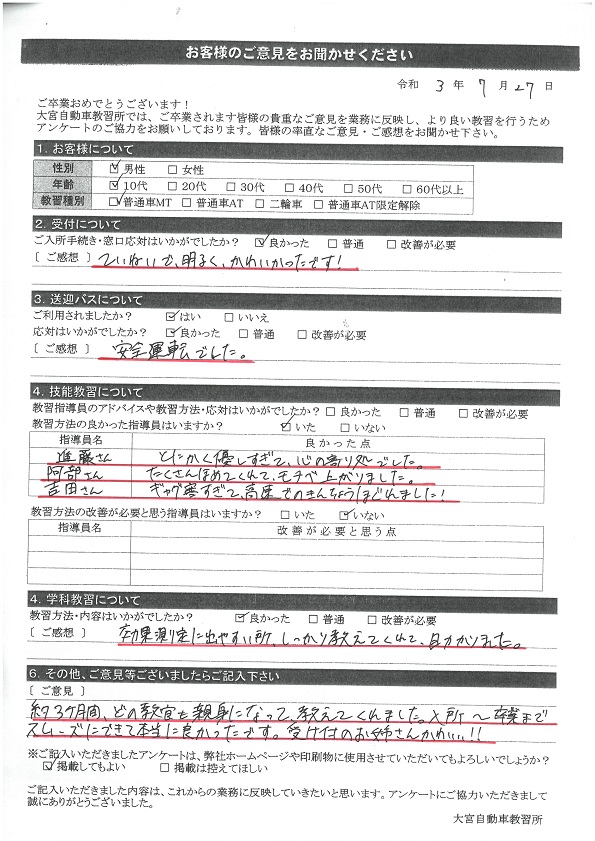 お客様のご意見をお聞かせください
令和 3 年 7 月 27 日
ご卒業おめでとうございます！
大宮自動車教習所では、ご卒業されます皆様の貴重なご意見を業務に反映し、より良い教習を行うため
アンケートのご協力をお願いしております。皆様の率直なご意見・ご感想をお聞かせ下さい。
1. お客様について
性別 ☑男性 □女性
年齢 ☑10代 □20代 □30代 □40代 □50代 □60代以上
教習種別 ☑普通車MT □普通車AT □二輪車 □普通車AT限定解除
2. 受付について
ご入所手続き・窓口応対はいかがでしたか？ ☑良かった □普通 □改善が必要
［ご感想］ ていねいで、明るく、かわいかったです！
3. 送迎バスについて
ご利用されましたか？ ☑はい □いいえ
応対はいかがでしたか？ ☑良かった □普通 □改善が必要
［ご感想］ 安全運転でした。
4. 技能教習について
教習指導員のアドバイスや教習方法・応対はいかがでしたか？ □良かった □普通 □改善が必要
教習方法の良かった指導員はいますか？ ☑いた □いない
指導員名 良かった点
進藤さん とにかく優しすぎて、心の寄り処でした。
阿部さん たくさんほめてくれて、モチベ上がりました。
吉田さん ギャグ寒すぎて、高速でのきんちょうほどれました！
教習方法の改善が必要と思う指導員はいますか？ □いた ☑いない
指導員名 改善が必要と思う点
4. 学科教習について
教習方法・内容はいかがでしたか？ ☑良かった □普通 □改善が必要
［ご感想］ 効果測定に出やすい所、しっかり教えてくれて、助かりました。
6. その他、ご意見等ございましたらご記入下さい
［ご意見］
約3ヶ月間、どの教官も親身になって、教えてくれました。入所～卒業まで
スムーズにできて本当に良かったです。受け付のお姉さんかわいい!!
※ご記入いただきましたアンケートは、弊社ホームページや印刷物に使用させていただいてもよろしいでしょうか？
☑掲載してもよい □掲載は控えてほしい
ご記入いただきました内容は、これからの業務に反映していきたいと思います。アンケートにご協力いただきまして
誠にありがとうございました。
大宮自動車教習所